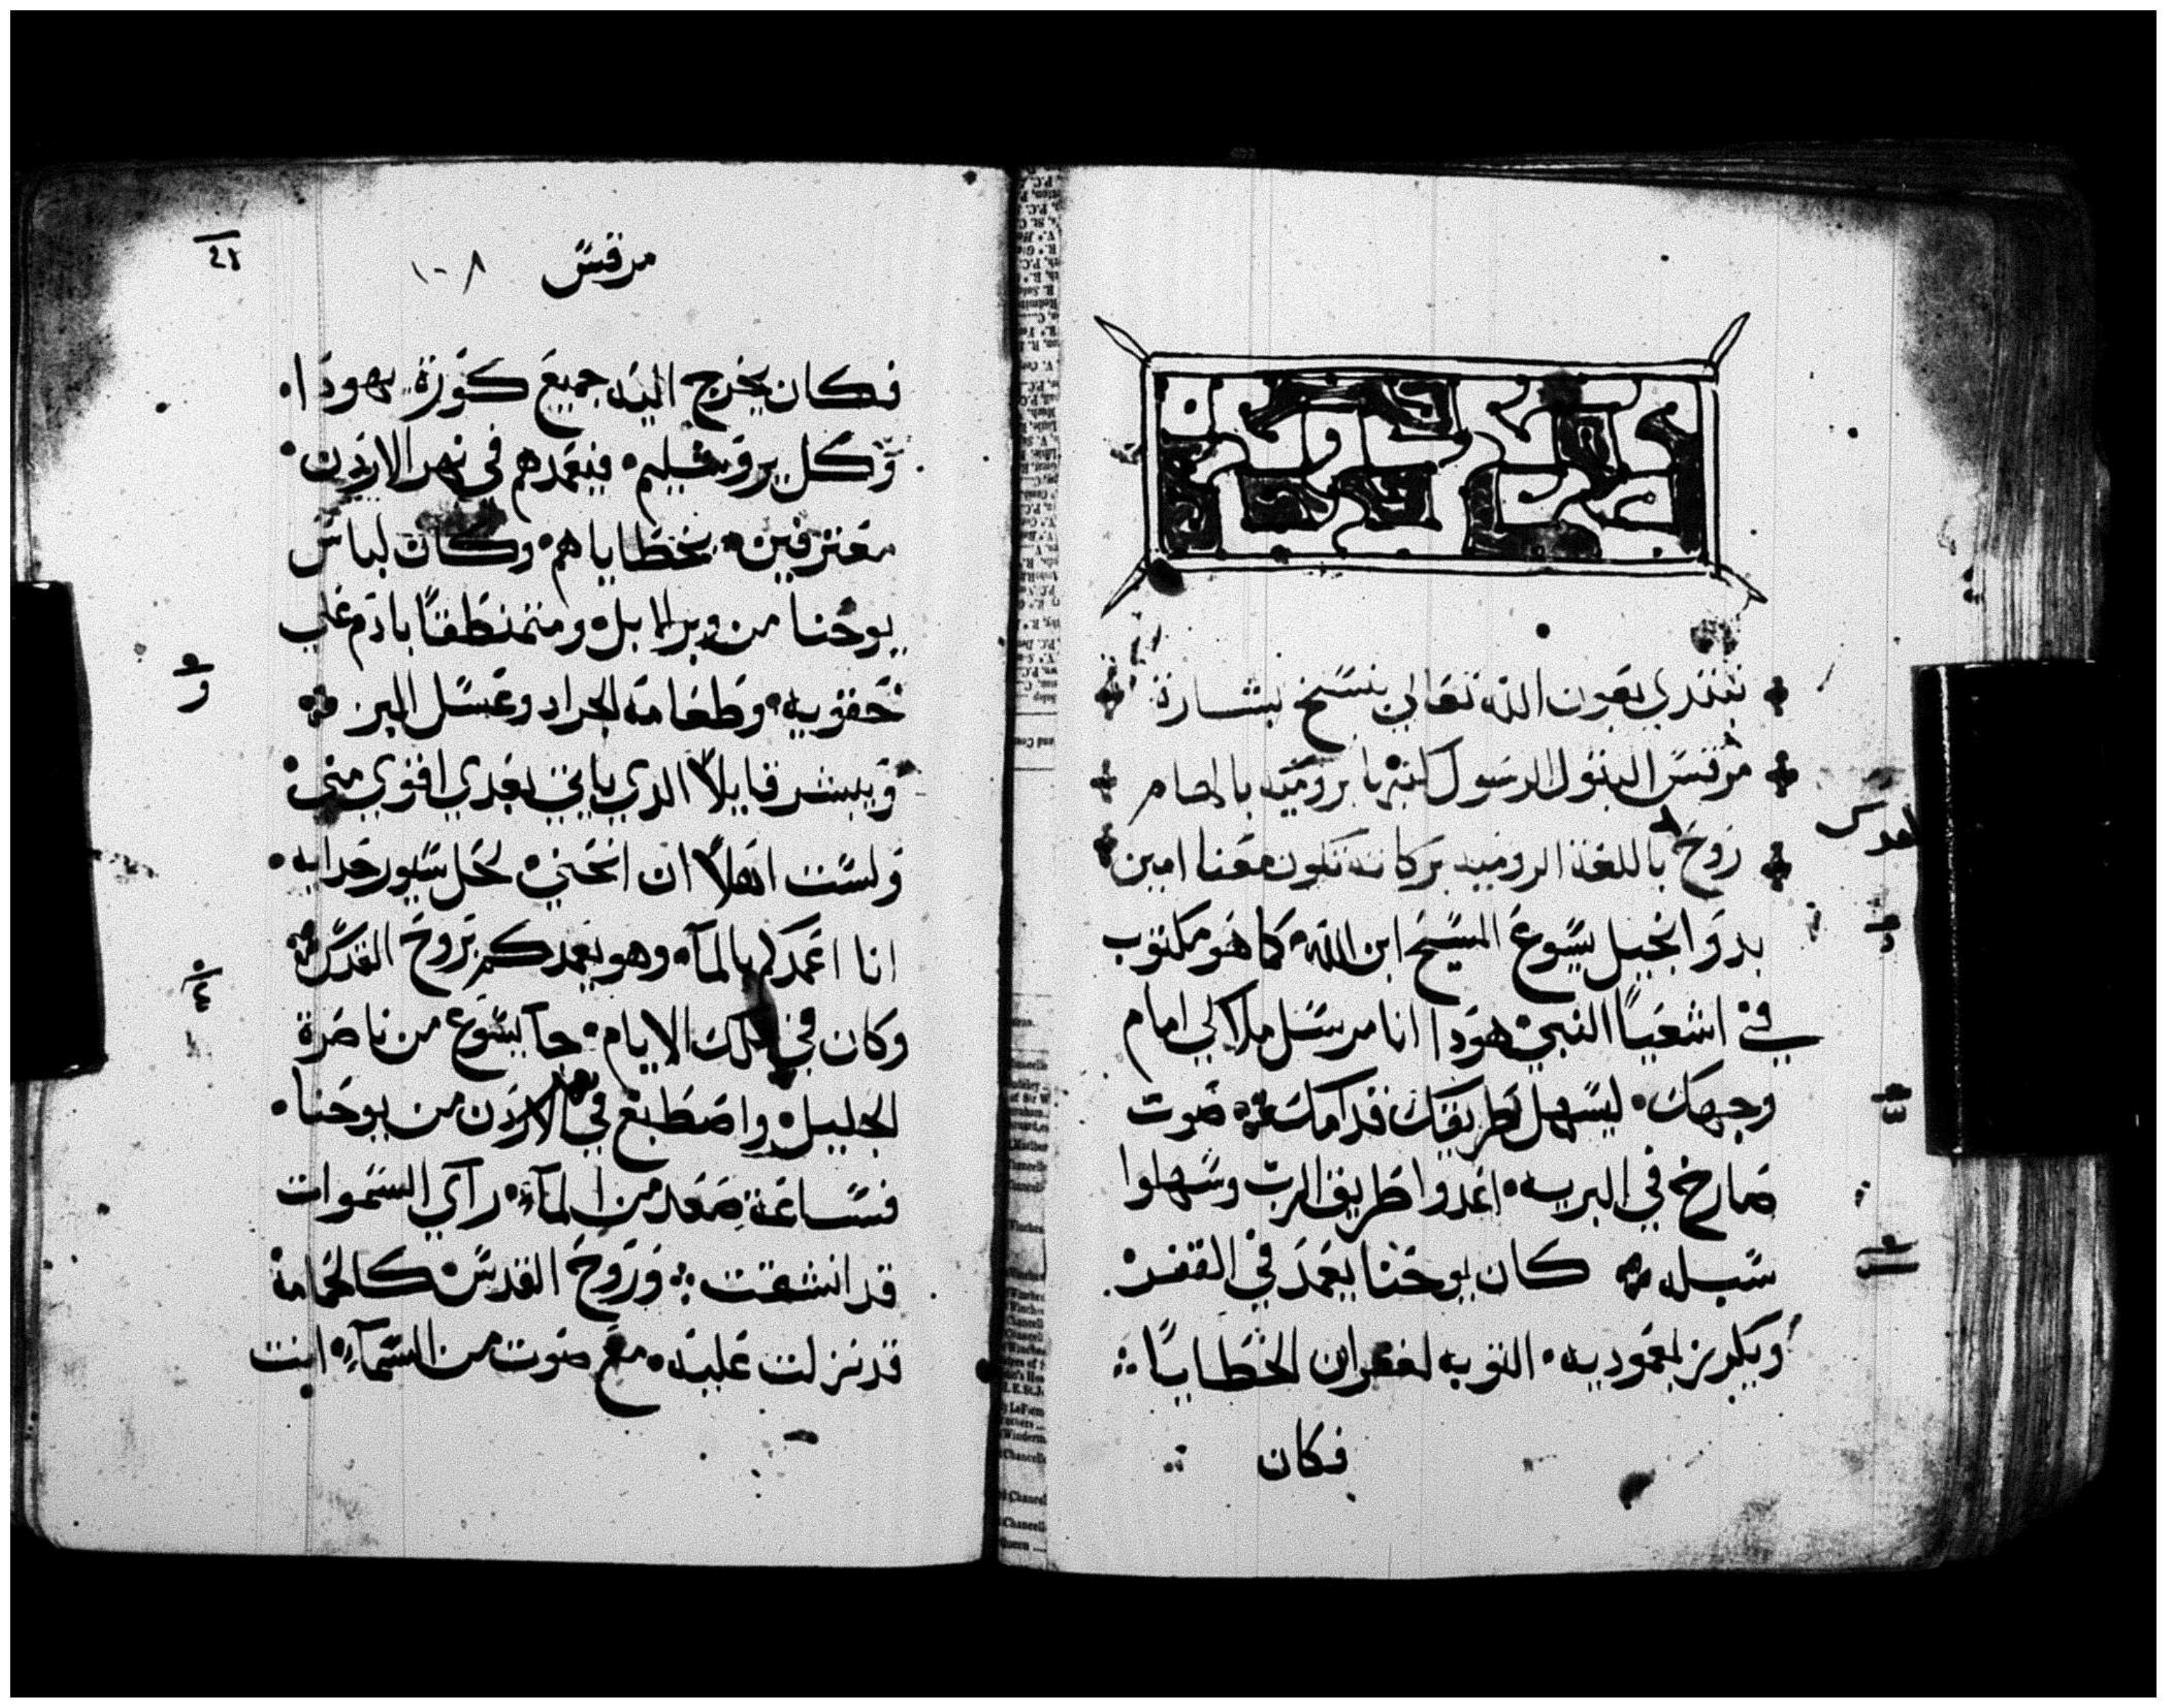 نبتدي بعون الله تعالى بنسخ بشارة
مرقس البتول الرسول كتبه بروميه بالهام
روح القدس باللغة الروميه بركاته تكون معنا امين
بدو انجيل يسوع المسيح ابن الله كما هو مكتوب
في اشعيا النبي هودا انا مرسل ملاكي امام
وجهك ليسهل طريقك قدامك صوت
صارخ في البريه اعدوا طريق الرب وسهلوا
سبله كان يوحنا يعمد في القفر
ويكرز بمعموديه التوبه لغفران الخطايا
فكان
مرقس ١٠٨
فكان يخرج اليه جميع كورة يهودا
وكل يروشليم فيعمدهم في نهر الاردن
معترفين بخطاياهم وكان لباس
يوحنا من وبر الابل ومتمنطقا بادم على
حقويه وطعامه الجراد وعسل البر
ويبشر قايلا الذي ياتي بعدي اقوي مني
ولست اهلا ان انحني لحل سيور حدايه
انا اعمدكم بالمآ وهو يعمدكم بروح القدس
وكان في تلك الايام جآ يسوع من ناصرة
الجليل واصطبغ في نهر الاردن من يوحنا
فساعة صعد من المآء رآي السموات
قد انشقت وروح القدس كالحمامة
قد نزلت عليه مع صوت من السمآء انت